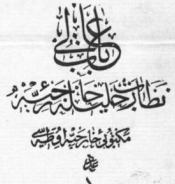 باب عالی
نظارت جلیلهٔ خارجیه
مکتوبی خارجیه اوطه‌سی
عدد